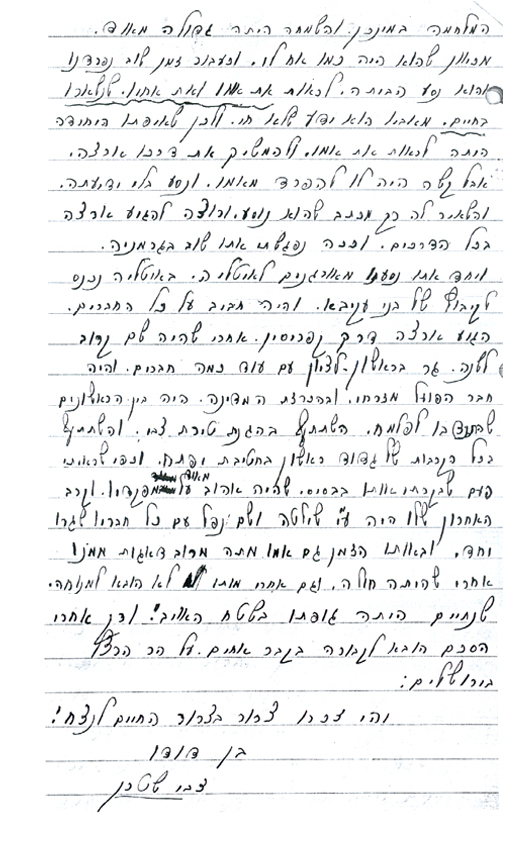 המלחמה במינכן. והשמחה היתה גדולה מאוד.
מכיוון שהוא היה כמו אח לו. וכעבור זמן שוב נפרדנו
והוא נסע הביתה. לראות את אמו ואת אחיו. שנשארו
בחיים. מאביו הוא ידע שלא חי. ולכן שאיפתו היחידה
היתה לראות את אמו. ולהמשיך את דרכו ארצה.
אבל קשה היה לו להפרד מאמו. ונסע בלי ידיעתה.
והשאיר לה רק מכתב שהוא נוסע. ורוצה להגיע ארצה
בכל הדרכים. וככה נפגשתי אתו שוב בגרמניה.
ויחד אתו נסענו מאורגנים לאיטליה. באיטליה נכנס
לקיבוץ של בני עקיבא. והיה חביב על כל החברים.
הגיע ארצה דרך קפריסין. אחרי שהיה שם קרוב
לשנה. גר בראשון-לציון עם עוד כמה חברים. והיה
חבר הפועל מזרחי. ובהכרזת המדינה. היה בין הראשונים
שבתנדבו לפלמח. השתתף בהגנת טירת צבי. והשתתף
בכל הקרבות של גדוד ראשון בחטיבת יפתח. וכפי שראיתי
פעם שבקרתי אותו בבסיס. שהיה אהוב מאוד על מפקדיו. וקרב
האחרון שלו היה ע"י שילטה ושם נפל עם כל חבריו שגרו
יחד. ובאותו הזמן גם אמו מתה מרוב דאגות ממנו
אחרי שהיתה חולה. וגם אחרי מותו לא הובא למנוחה.
שנתיים היתה גופתו בשטח האויב! ורק אחרי
הסכם הובא לקבורה בקבר אחים. על הר הרצל
בירושלים:
והי זכרו צרור בצרור החיים לנצח!
בן דודו
צבי שטרן